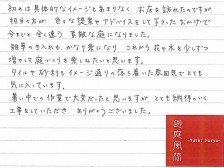 初めは具体的なイメージもあまりなく、お店を訪れたのですが、
担当の方が色々な提案やアドバイスをして下さったおかげで
今までと全く違う素敵な庭になりました。
雑草の手入れもかなり楽になり、これから花や木を少しずつ
増やして庭づくりを楽しみたいと思います。
タイルや砂利もイメージ通りの落ち着いた雰囲気でとても
気に入っています。
暑い中での作業で大変だったと思いますが、とても納得のいく
工事をしていただき、ありがとうございました。
遊庭風流
-Yutei Furyu-